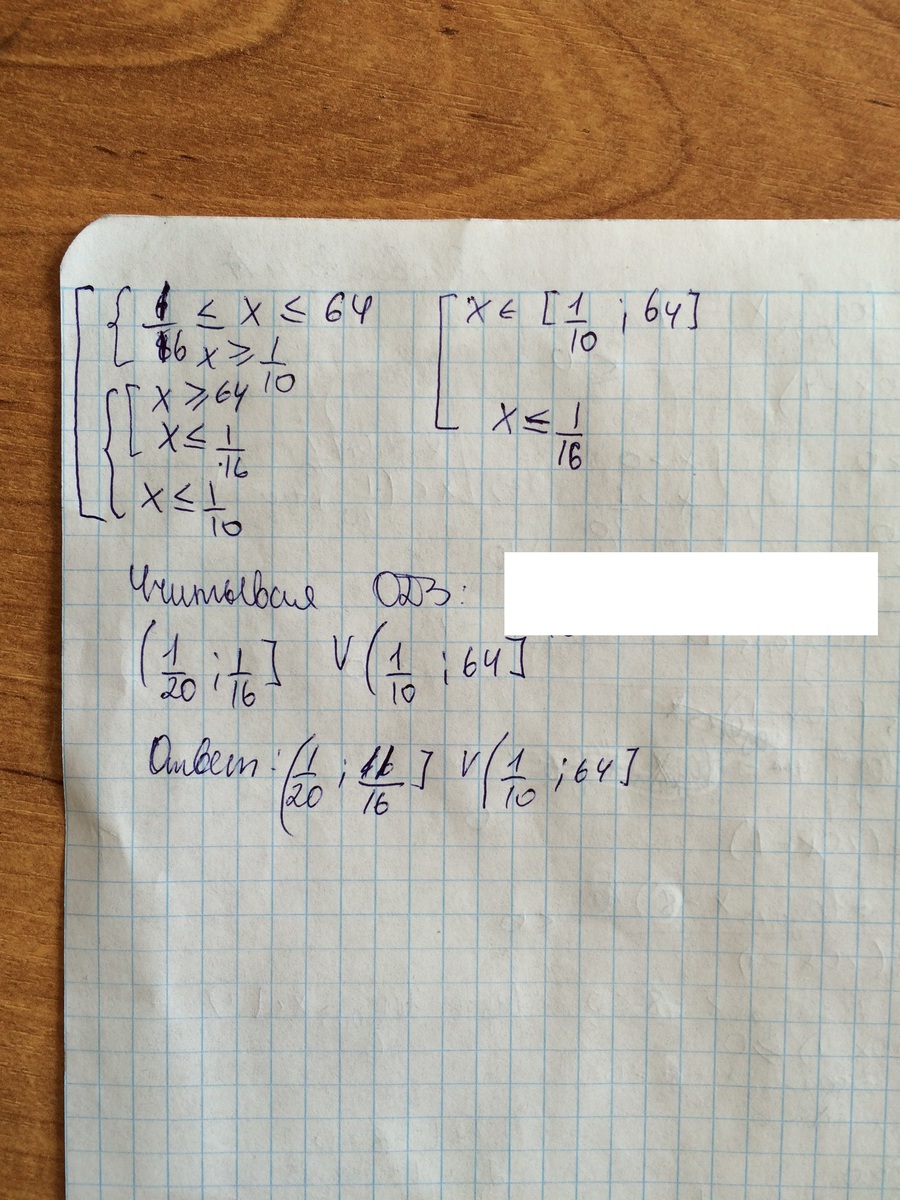 1/16 ≤ x ≤ 64
x ≥ 1/10
x ≥ 64
x ≤ 1/16
x ≤ 1/10
x ∈ [1/10 ; 64]
x ≤ 1/16
Учитывая ОДЗ:
(1/20 ; 1/16] ∨ (1/10 ; 64]
Ответ: (1/20 ; 1/16] ∨ (1/10 ; 64]